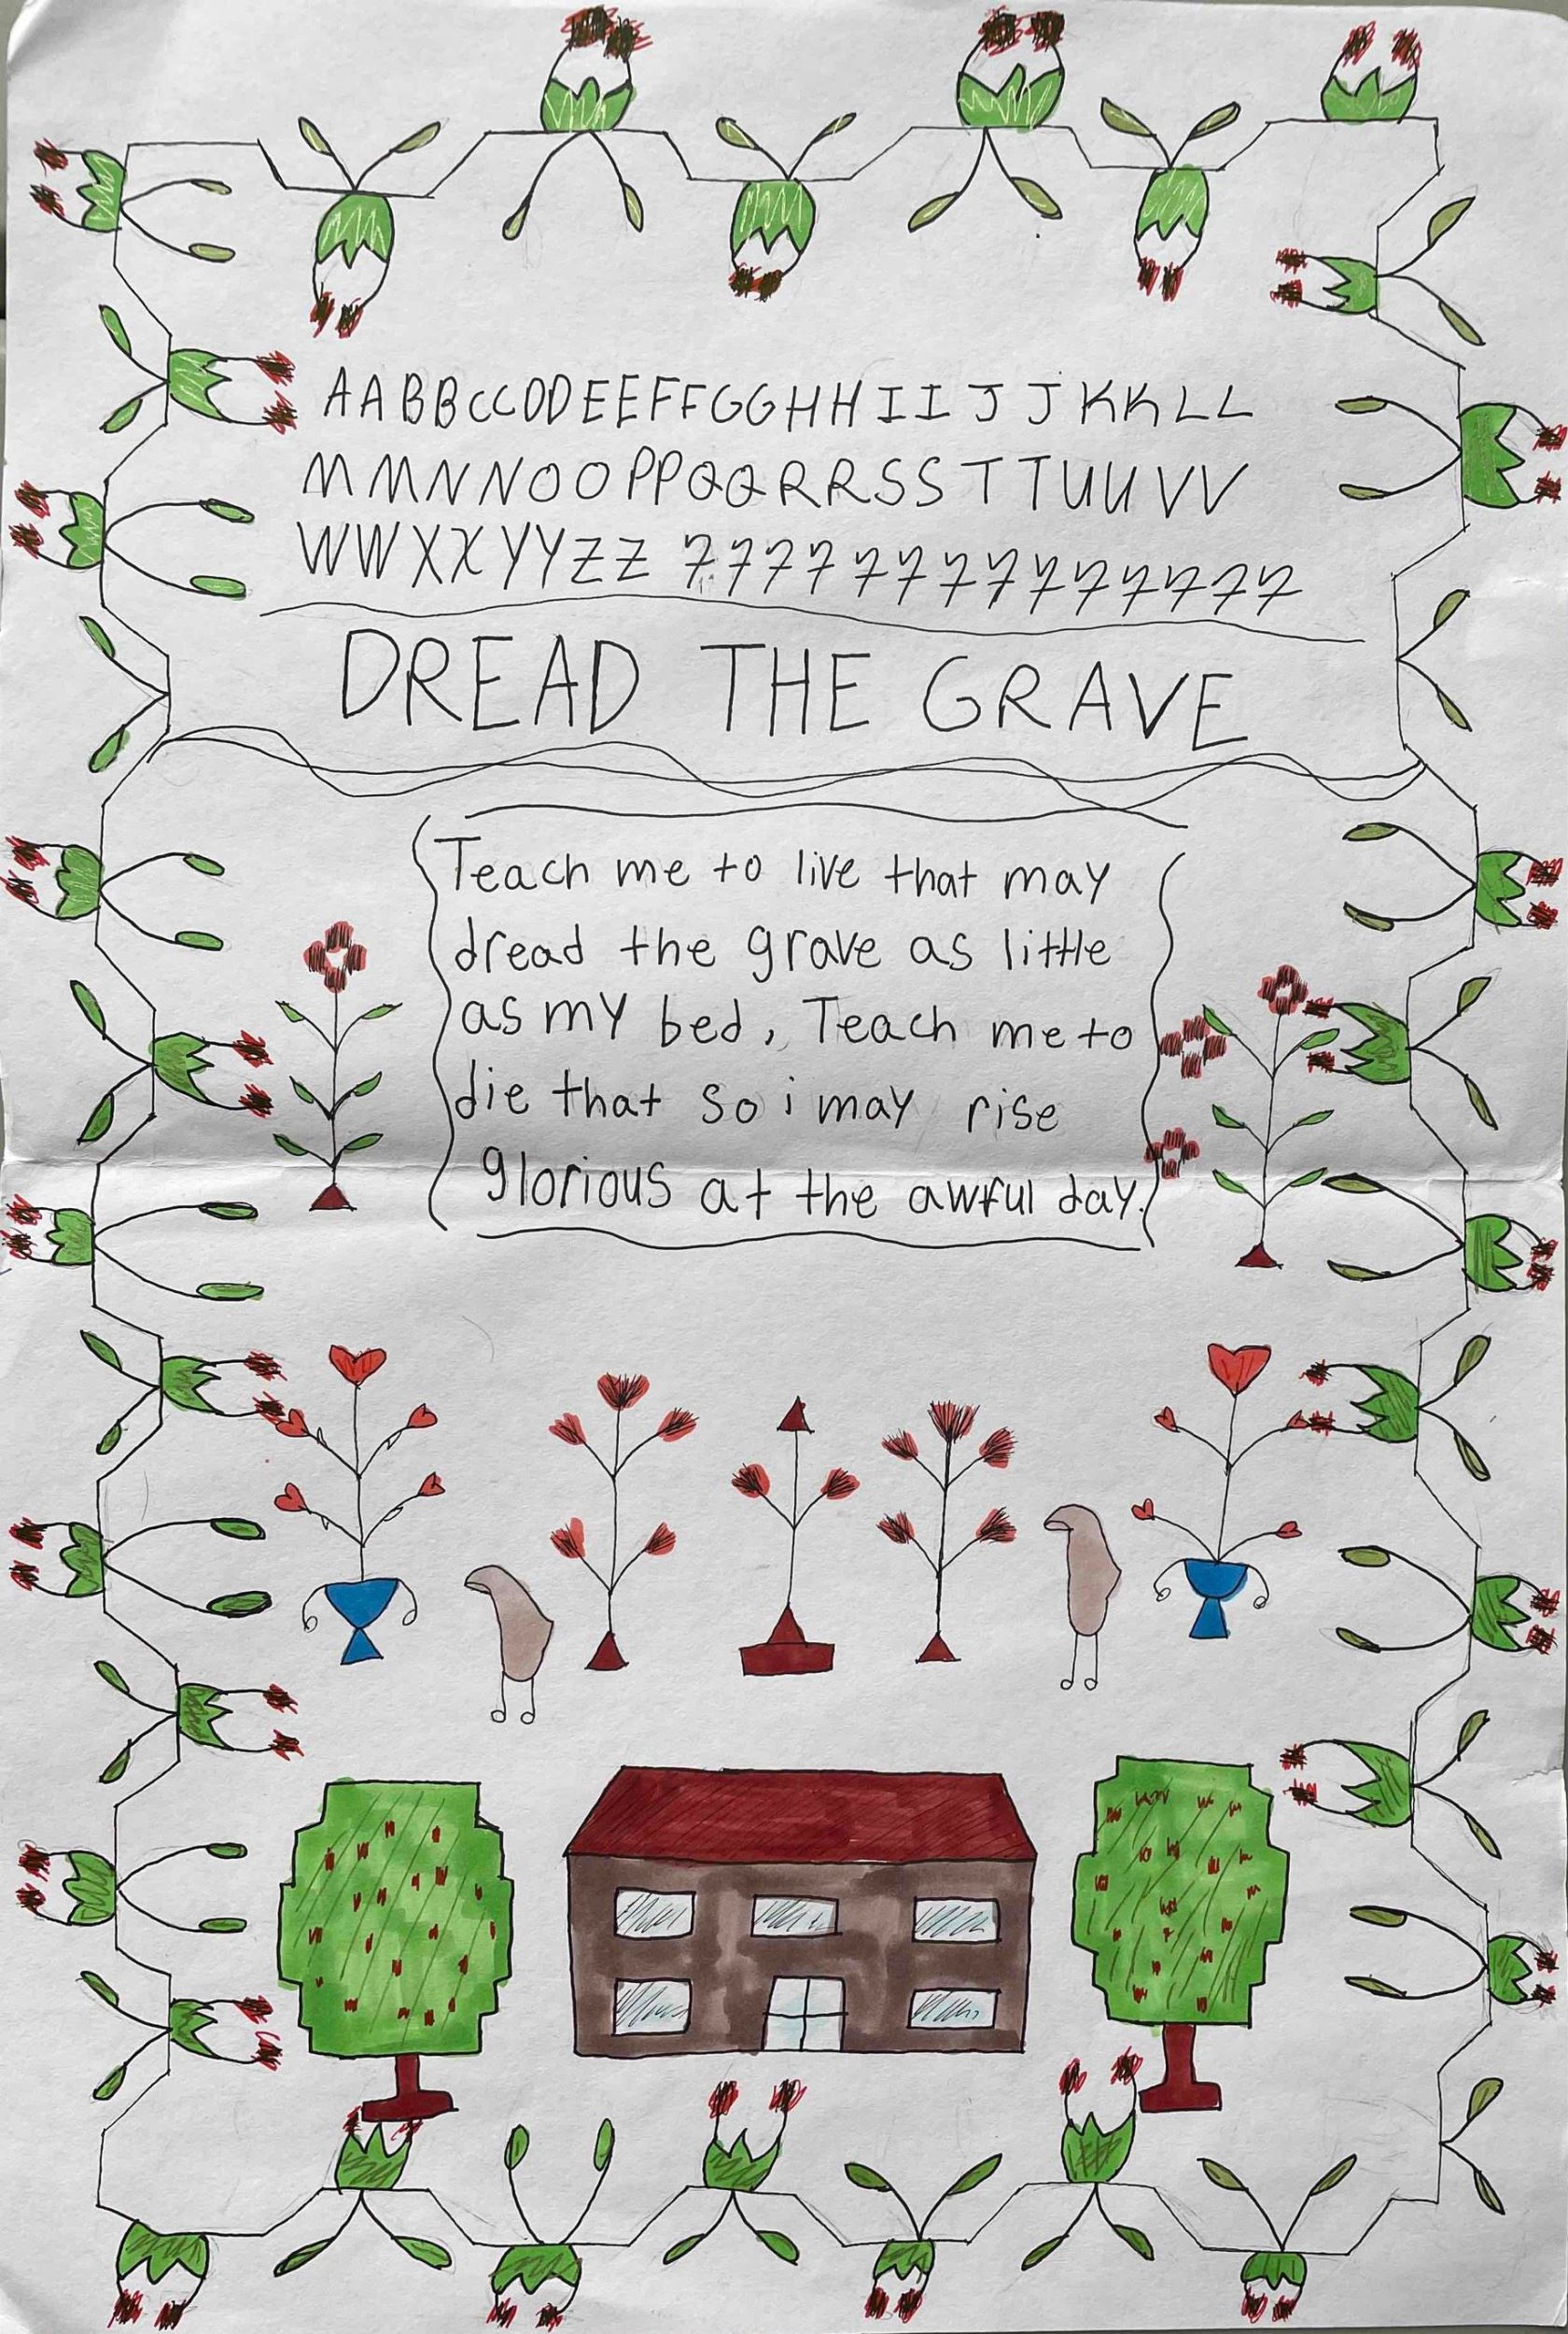 AABBCCDDEEFFGGHHIIJJKKLL
MMNNOOPPQQRRSSTTUUVV
WWXXYYZZ 77777777777777
DREAD THE GRAVE
Teach me to live that may
dread the grave as little
as my bed, Teach me to
die that so i may rise
glorious at the awful day.